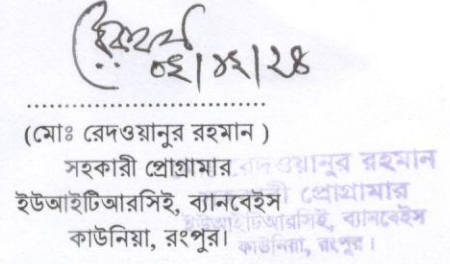 ০২|১২|২৪
(মোঃ রেদওয়ানুর রহমান )
সহকারী প্রোগ্রামার
ইউআইটিআরসিই, ব্যানবেইস
কাউনিয়া, রংপুর।
রেদওয়ানুর রহমান
সহকারী প্রোগ্রামার
ইউআইটিআরসিই, ব্যানবেইস
কাউনিয়া, রংপুর।